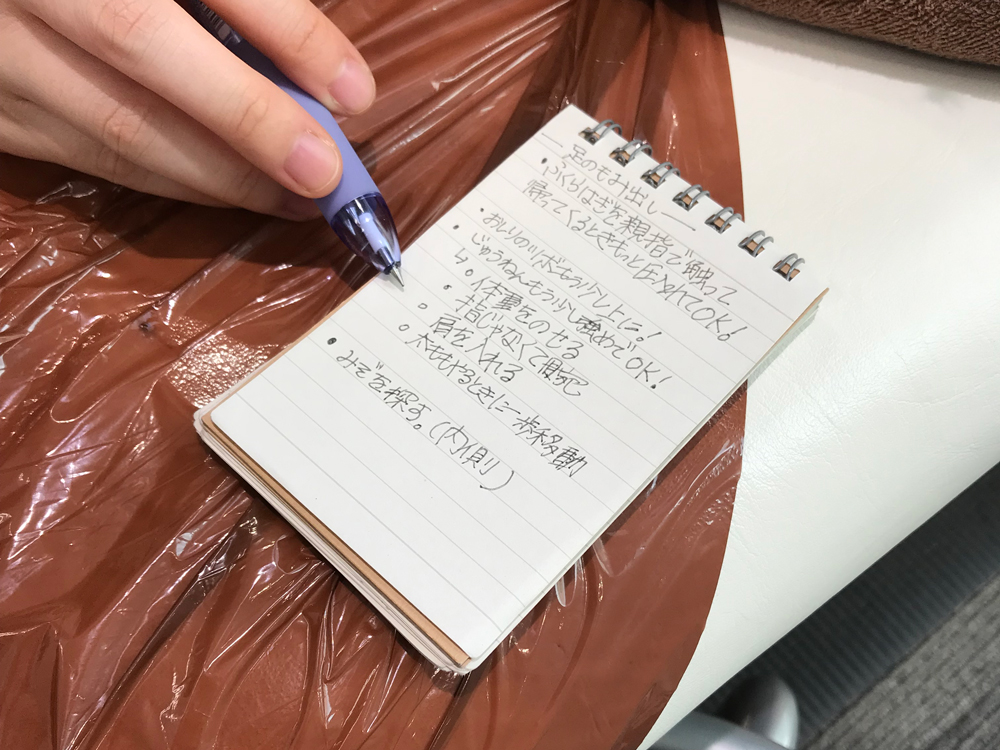 ― 足のもみ出し ―
・ふくらはぎを親指で触って
帰ってくるときもっと圧入れてOK!
・おしりのツボもう少し上に!
・じゅうねんもう少し強めでOK!
↳・体重をのせる
・指じゃなくて腕で
○肩を入れる
○太ももやるときに一歩移動
・みぞを探す。(内側)